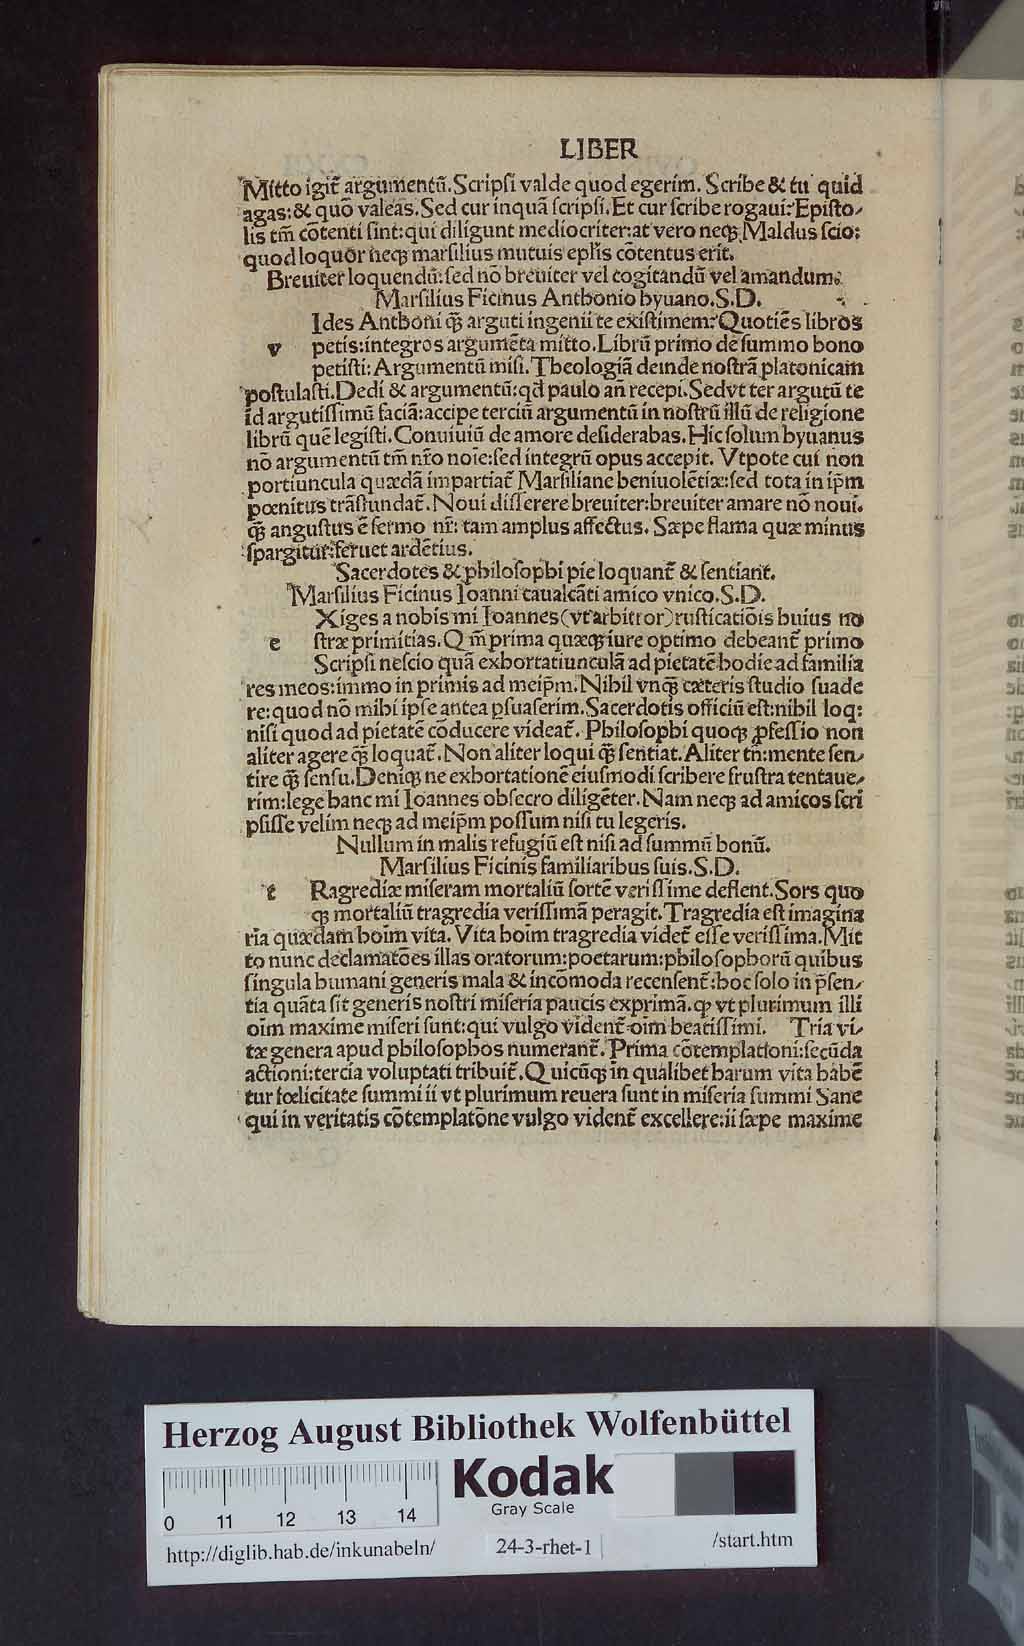 LIBER
Mitto igit̃ argumentũ.Scripſi valde quod egerim. Scribe & tu quid
agas:& quõ valeas.Sed cur inquã ſcripſi.Et cur ſcribe rogaui?Epiſto-
lis tm̃ cõtenti ſint:qui diligunt mediocriter:at vero neqꝫ Maldus ſcio:
quod loquor neqꝫ marſilius mutuis ep̃lis cõtentus erit.
Breuiter loquendũ:ſed nõ breuiter vel cogitandũ vel amandum.
Marſilius Ficinus Anthonio hyuano.S.D.
Ides Anthoni qꝫ̃ arguti ingenii te exiſtimem?Quotiẽs libros
v petis:integros argumẽta mitto.Librũ primo de ſummo bono
petiſti:Argumentũ miſi.Theologiã deinde noſtrã platonicam
poſtulaſti.Dedi & argumentũ:qd̃ paulo añ recepi.Sedvt ter argutũ te
id argutiſſimũ faciã:accipe terciũ argumentũ in noſtrũ illũ de religione
librũ quẽ legiſti.Conuiuiũ de amore deſiderabas.Hic ſolum hyuanus
nõ argumentũ tm̃ nr̃o noĩe:ſed integrũ opus accepit. Vtpote cui non
portiuncula quædã impartiat̃ Marſiliane beniuolẽtiæ:ſed tota in ip̃m
pœnitus trãſfundat̃.Noui diſſerere breuiter:breuiter amare nõ noui.
qꝫ̃ anguſtus ẽ ſermo nr̃: tam amplus affectus. Sæpe flama quæ minus
ſpargitur:feruet ardẽtius.
Sacerdotes & philoſophi pie loquant̃ & ſentiant.
Marſilius Ficinus Ioanni caualcãti amico vnico.S.D.
Xiges a nobis mi Ioannes(vt arbitror)ruſticatiõis huius no
e ſtræ primitias.Q m̃ prima quæqꝫ iure optimo debeant̃ primo
Scripſi neſcio quã exhortatiunculã ad pietatẽ hodie ad familia
res meos:immo in primis ad meip̃m.Nihil vnqꝫ̃ cæteris ſtudio ſuade
re:quod nõ mihi ipſe antea ꝑſuaſerim.Sacerdotis officiũ eſt:nihil loq:
niſi quod ad pietatẽ cõducere videat̃. Philoſophi quoqꝫ ꝓfeſſio non
aliter agere qꝫ̃ loquat̃.Non aliter loqui qꝫ̃ ſentiat.Aliter tñ:mente ſen-
tire qꝫ̃ ſenſu.Deniqꝫ ne exhortationẽ eiuſmodi ſcribere fruſtra tentaue-
rim:lege hanc mi Ioannes obſecro diligẽter.Nam neqꝫ ad amicos ſcri
pſiſſe velim neqꝫ ad meip̃m poſſum niſi tu legeris.
Nullum in malis refugiũ eſt niſi ad ſummũ bonũ.
Marſilius Ficinis familiaribus ſuis.S.D.
t Ragrediæ miſeram mortaliũ ſortẽ veriſſime deflent.Sors quo
qꝫ mortaliũ tragredia veriſſimã peragit.Tragredia eſt imagina
ria quædam hoim̃ vita. Vita hoim̃ tragredia videt̃ eſſe veriſſima.Mit
to nunc declamatões illas oratorum:poetarum:philoſophorũ quibus
ſingula humani generis mala & incõmoda recenſent̃:hoc ſolo in p̃ſen-
tia quãta ſit generis noſtri miſeria paucis exprimã.ꝙ vt plurimum illi
oim̃ maxime miſeri ſunt:qui vulgo vident̃ oim̃ beatiſſimi. Tria vi-
tæ genera apud philoſophos numerant̃. Prima cõtemplationi:ſecũda
actioni:tercia voluptati tribuit̃.Q uicũqꝫ in qualibet harum vita habẽ
tur fœlicitate ſummi ii vt plurimum reuera ſunt in miſeria ſummi Sane
qui in veritatis cõtemplatõne vulgo vident̃ excellere:ii ſæpe maxime
Herzog August Bibliothek Wolfenbüttel
Kodak
Gray Scale
0 11 12 13 14
http://diglib.hab.de/inkunabeln/ 24-3-rhet-1 /start.htm